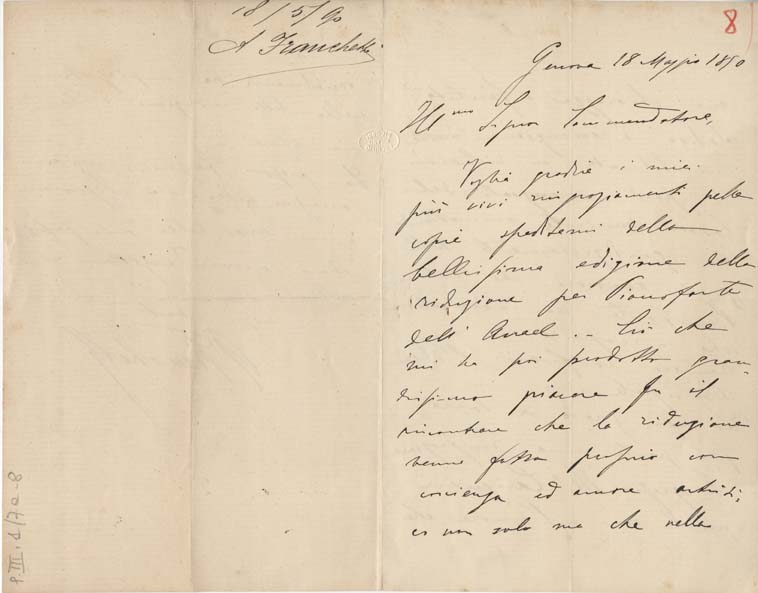 18/5/90
A Franchetti
8
Genova 18 Maggio 1890
Ill.mo Signor Commendatore,
Voglia gradire i miei
più vivi ringraziamenti pelle
copie speditemi della
bellissima edizione della
riduzione per Pianoforte
dell' Asrael. - Ciò che
mi ha poi prodotto gran-
dissimo piacere fu il
riscontrare che la riduzione
venne fatta proprio con
coscienza ed amore artisti-
co non solo ma che nella
P.III.d/7a-8